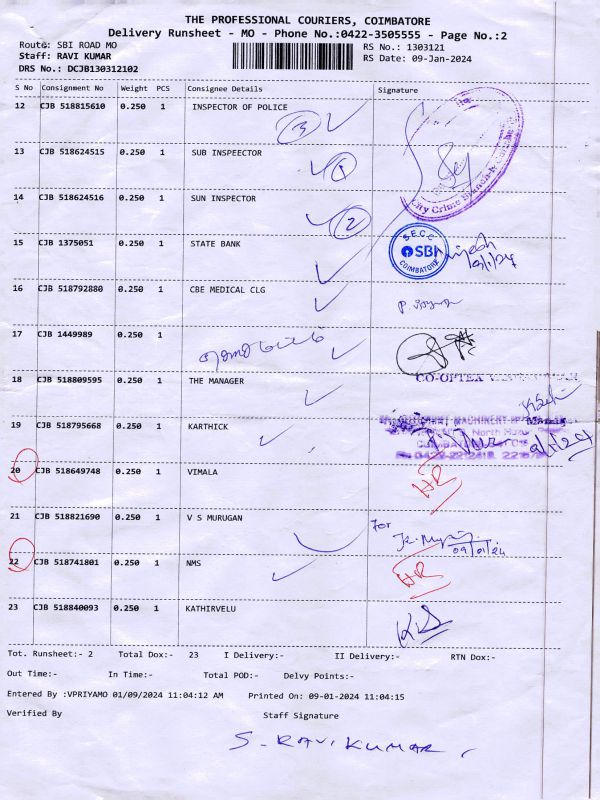 THE PROFESSIONAL COURIERS, COIMBATORE
Delivery Runsheet - MO - Phone No.:0422-3505555 - Page No.:2
Route: SBI ROAD MO
RS No.: 1303121
Staff: RAVI KUMAR
RS Date: 09-Jan-2024
DRS No.: DCJB130312102
S No Consignment No Weight PCS Consignee Details Signature
12 CJB 518815610 0.250 1 INSPECTOR OF POLICE
3
13 CJB 518624515 0.250 1 SUB INSPEECTOR
1
14 CJB 518624516 0.250 1 SUN INSPECTOR
2
City Crime Branch
15 CJB 1375051 0.250 1 STATE BANK
S.E.C.C
SBI
COIMBATORE
16 CJB 518792880 0.250 1 CBE MEDICAL CLG
17 CJB 1449989 0.250 1
18 CJB 518809595 0.250 1 THE MANAGER
CO-OPTEX
19 CJB 518795668 0.250 1 KARTHICK
20 CJB 518649748 0.250 1 VIMALA
HR
21 CJB 518821690 0.250 1 V S MURUGAN
For
09/01/24
22 CJB 518741801 0.250 1 NMS
HR
23 CJB 518840093 0.250 1 KATHIRVELU
Tot. Runsheet:- 2 Total Dox:- 23 I Delivery:- II Delivery:- RTN Dox:-
Out Time:- In Time:- Total POD:- Delvy Points:-
Entered By :VPRIYAMO 01/09/2024 11:04:12 AM Printed On: 09-01-2024 11:04:15
Verified By Staff Signature
S. RAVIKUMAR.